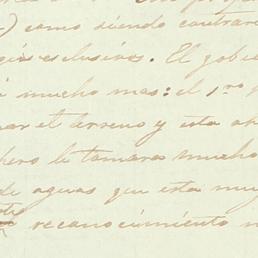 ) como siendo contrar
exclusivos. El gobi
mucho mas: el 1ro
ar el terreno y esta ah
pero le tomara mucho
de aguas que esta muy
reconocimiento